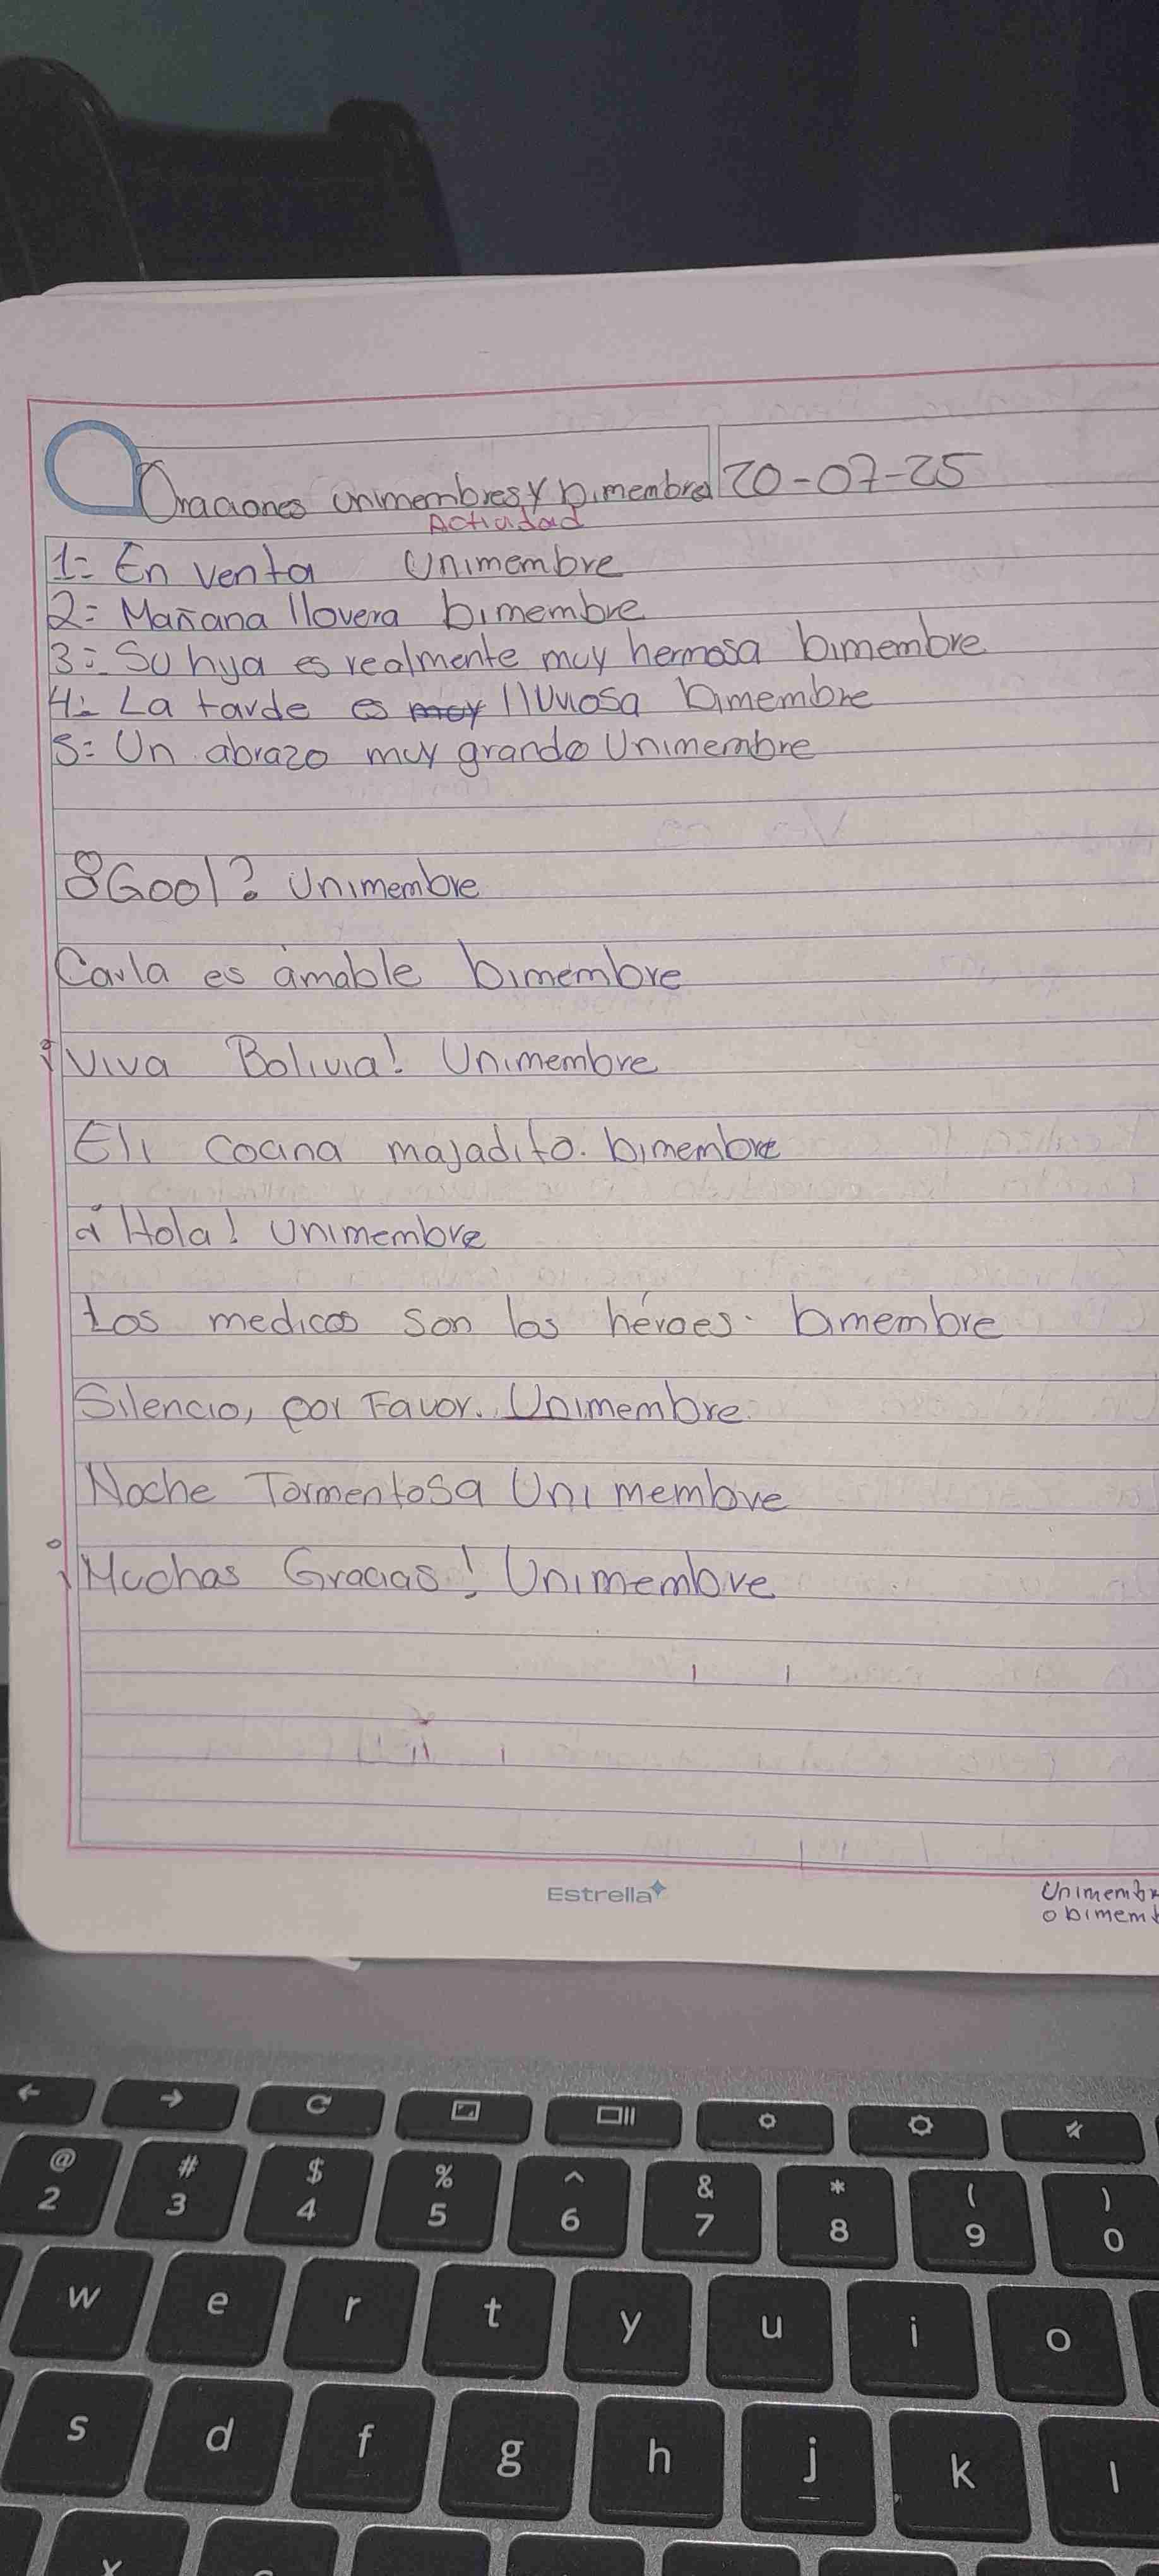 Oraciones unimembres y bimembre 20-07-25
Actividad
1= En venta Unimembre
2= Mañana llovera bimembre
3= Su hya es realmente muy hermosa bimembre
4= La tarde es muy lluviosa bimembre
5= Un abrazo muy grande Unimembre
Gool? Unimembre
Carla es amable bimembre
¡Viva Bolivia! Unimembre
Eli cocina majadito. bimembre
¡Hola! unimembre
Los medicos son los héroes. bimembre
Silencio, por Favor. Unimembre
Noche Tormentosa Unimembre
¡Muchas Gracias! Unimembre
Estrella
Unimembr
o bimemb
← → 
@ # $ % ^ & * ( )
2 3 4 5 6 7 8 9 0
w e r t y u i o
s d f g h j k l
x